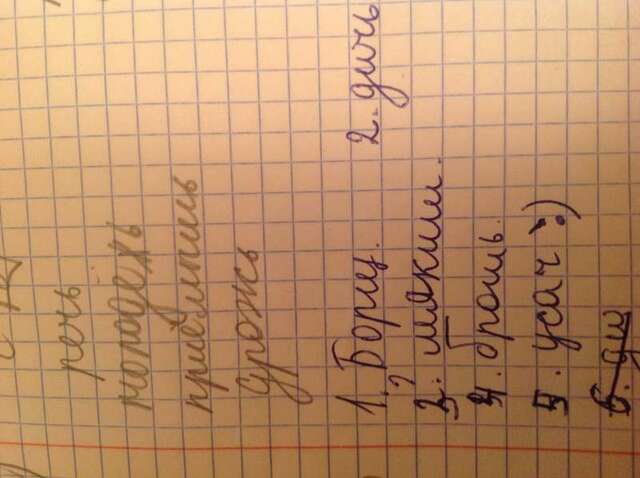 речь
молодёжь
приёмышь
дрожь
1. Борщ. 2. дичь
3. мякиш.
4. брошь.
5. усач :)
6. ди